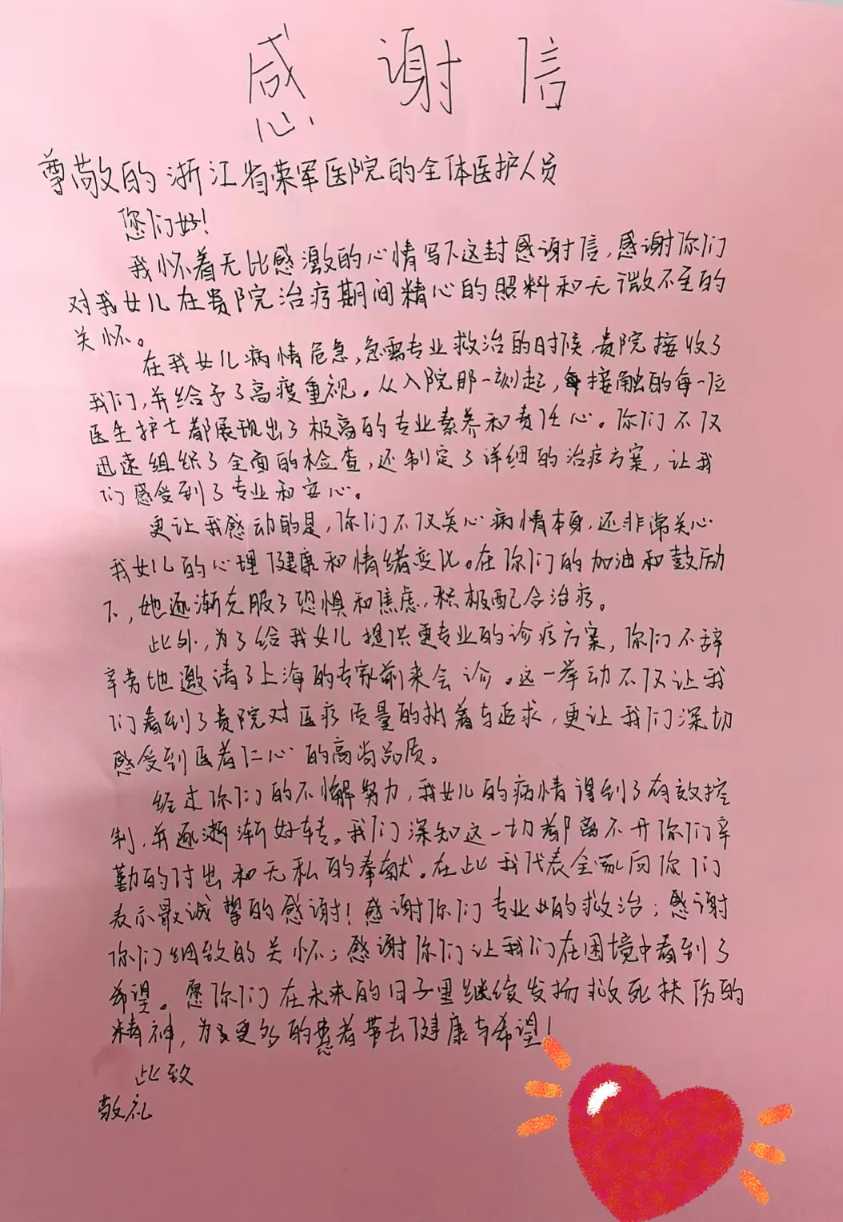 感谢信
尊敬的浙江省荣军医院的全体医护人员
您们好!
我怀着无比感激的心情写下这封感谢信,感谢你们
对我女儿在贵院治疗期间精心的照料和无微不至的
关怀。
在我女儿病情危急,急需专业救治的时候,贵院接收了
我们,并给予了高度重视。从入院那一刻起,接触的每一位
医生护士都展现出了极高的专业素养和责任心。你们不仅
迅速组织了全面的检查,还制定了详细的治疗方案,让我
们感受到了专业和安心。
更让我感动的是,你们不仅关心病情本身,还非常关心
我女儿的心理健康和情绪变化。在你们的加油和鼓励
下,她逐渐克服了恐惧和焦虑,积极配合治疗。
此外,为了给我女儿提供更专业的诊疗方案,你们不辞
辛劳地邀请了上海的专家前来会诊。这一举动不仅让我
们看到了贵院对医疗质量的执着与追求,更让我们深切
感受到医者仁心的高尚品质。
经过你们的不懈努力,我女儿的病情得到了有效控
制,并逐渐渐好转。我们深知这一切都离不开你们辛
勤的付出和无私的奉献。在此我代表全家向你们
表示最诚挚的感谢!感谢你们专业的救治;感谢
你们细致的关怀;感谢你们让我们在困境中看到了
希望。愿你们在未来的日子里继续发扬救死扶伤的
精神,为更多的患者带去健康与希望!
此致
敬礼